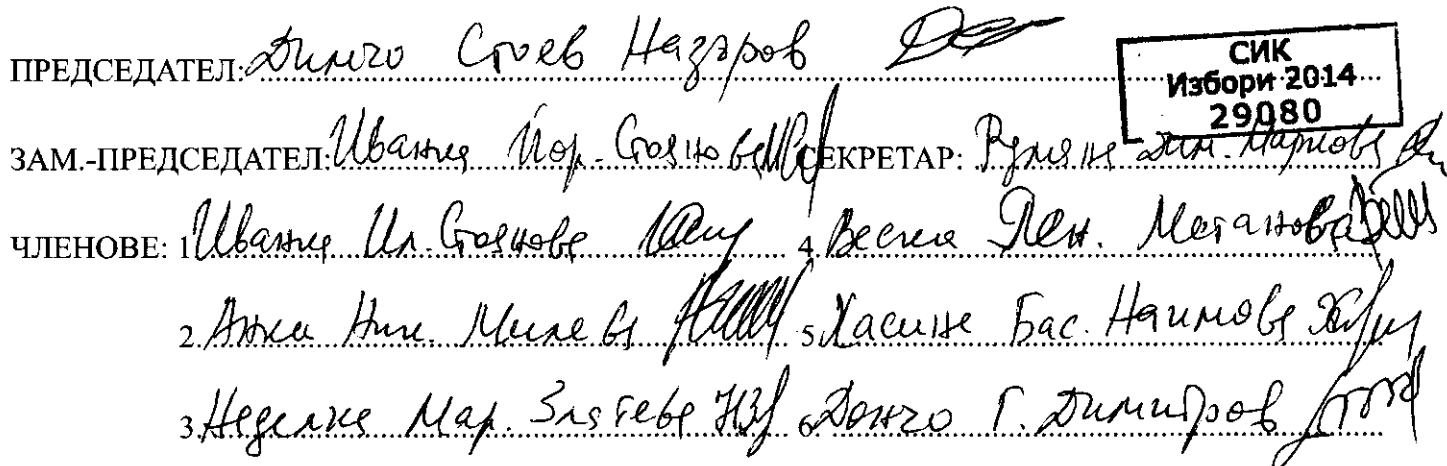 ПРЕДСЕДАТЕЛ: Динчо Стоев Назъров
СИК
Избори 2014
29080
ЗАМ.-ПРЕДСЕДАТЕЛ: Иванка Йор. Стоянова СЕКРЕТАР: Румяна Дим. Маркова
ЧЛЕНОВЕ: 1 Иванка Ил. Стоянова 4. Веска Пен. Метанова
2. Анка Ник. Милева 5. Хасине Бас. Наимова
3. Неделка Мар. Златева 6. Дончо Г. Димитров